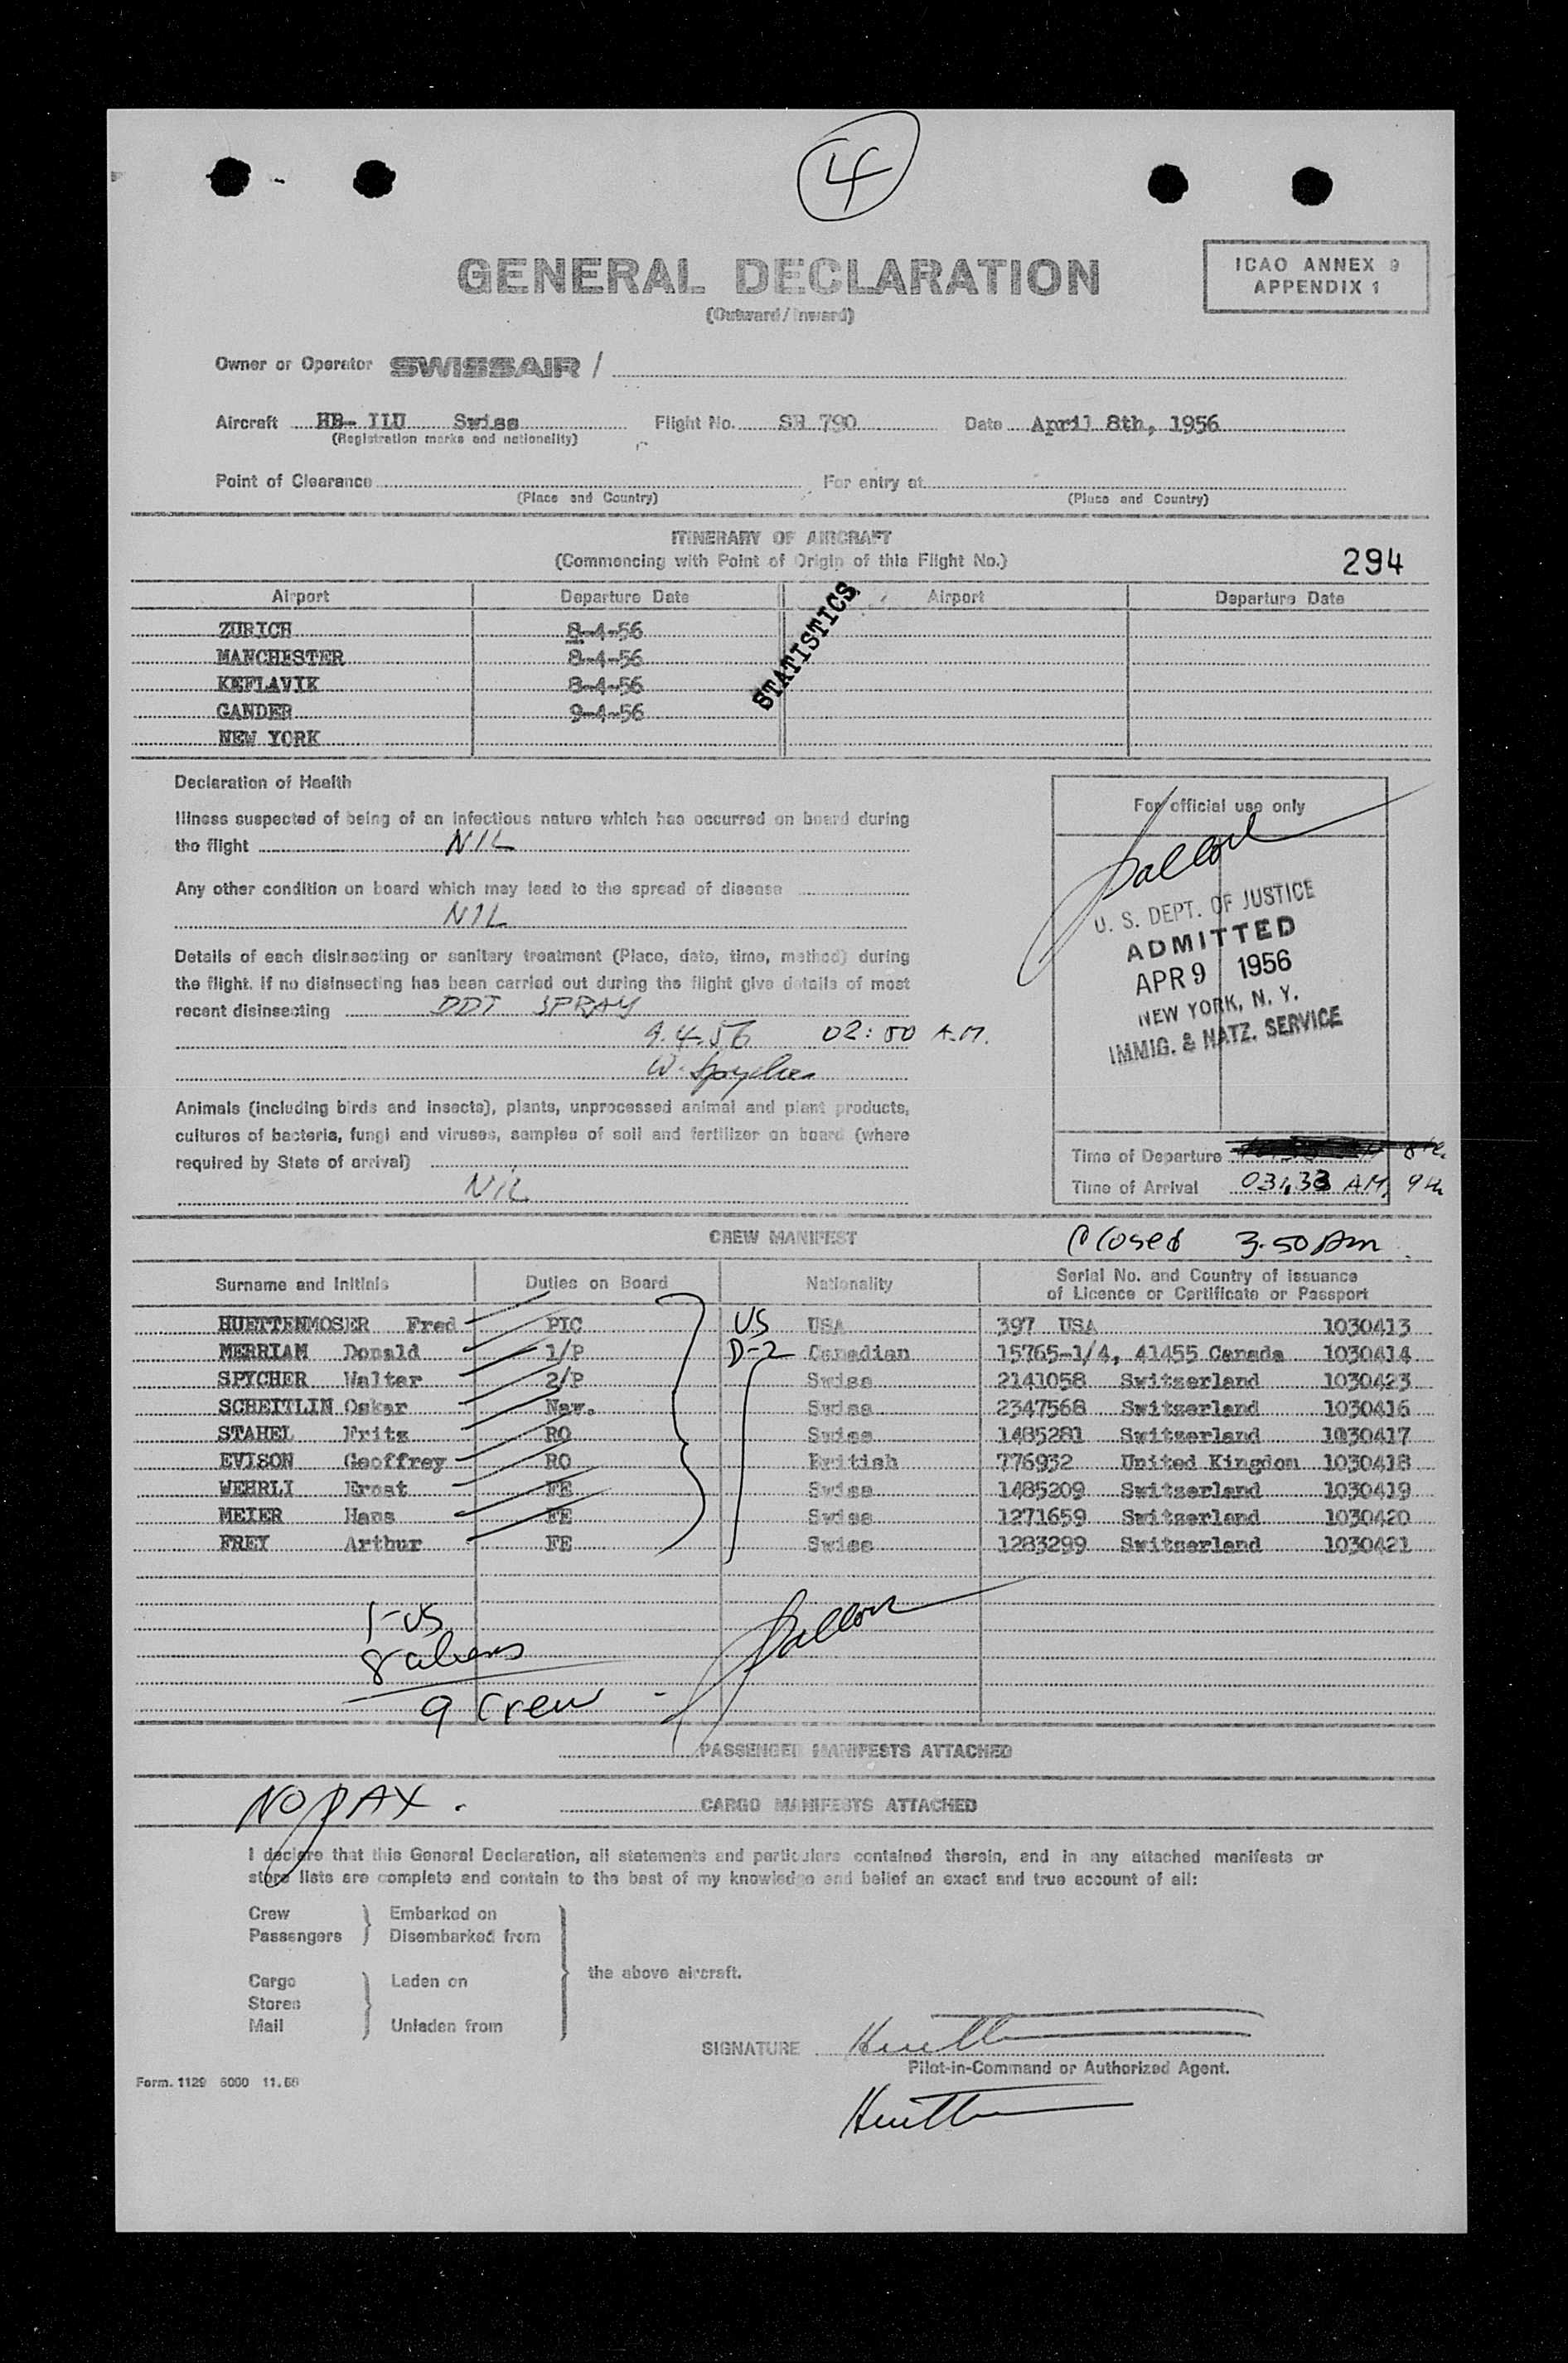 4
GENERAL DECLARATION
(Outward/Inward)
ICAO ANNEX 9
APPENDIX 1
Owner or Operator SWISSAIR /
Aircraft HB- ILU Swiss Flight No. SR 790 Date April 8th, 1956
(Registration marks and nationality)
Point of Clearance For entry at
(Place and Country) (Place and Country)
ITINERARY OF AIRCRAFT
(Commencing with Point of Origin of this Flight No.)
294
Airport Departure Date Airport Departure Date
STATISTICS
ZURICH 8-4-56
MANCHESTER 8-4-56
KEFLAVIK 8-4-56
GANDER 9-4-56
NEW YORK
Declaration of Health
Illness suspected of being of an infectious nature which has occurred on board during
the flight NIL
Any other condition on board which may lead to the spread of disease
NIL
Details of each disinsecting or sanitary treatment (Place, date, time, method) during
the flight. If no disinsecting has been carried out during the flight give details of most
recent disinsecting DDT SPRAY
9.4.56 02:00 A.M.
W. Spycher
Animals (including birds and insects), plants, unprocessed animal and plant products,
cultures of bacteria, fungi and viruses, samples of soil and fertilizer on board (where
required by State of arrival)
NIL
For official use only
U. S. DEPT. OF JUSTICE
ADMITTED
APR 9 1956
NEW YORK, N. Y.
IMMIG. & NATZ. SERVICE
Time of Departure 8th.
Time of Arrival 03:33 AM, 9th
CREW MANIFEST
Closed 3.50 Am
Surname and Initials Duties on Board Nationality Serial No. and Country of Issuance
of Licence or Certificate or Passport
HUETTENMOSER Fred PIC US USA 397 USA 1030413
MERRIAM Donald 1/P D-2 Canadian 15765-1/4, 41455 Canada 1030414
SPYCHER Walter 2/P Swiss 2141058 Switzerland 1030423
SCHEITLIN Oskar Nav. Swiss 2347568 Switzerland 1030416
STAHEL Fritz RO Swiss 1485281 Switzerland 1030417
EVISON Geoffrey RO British 776932 United Kingdom 1030418
WEHRLI Ernst FE Swiss 1485209 Switzerland 1030419
MEIER Hans FE Swiss 1271659 Switzerland 1030420
FREY Arthur FE Swiss 1283299 Switzerland 1030421
1-US
8 aliens
9 Crew
PASSENGER MANIFESTS ATTACHED
NO PAX.
CARGO MANIFESTS ATTACHED
I declare that this General Declaration, all statements and particulars contained therein, and in any attached manifests or
store lists are complete and contain to the best of my knowledge and belief an exact and true account of all:
Crew Embarked on
Passengers Disembarked from
the above aircraft.
Cargo Laden on
Stores
Mail Unladen from
SIGNATURE
Pilot-in-Command or Authorized Agent.
Form. 1129 5000 11.55